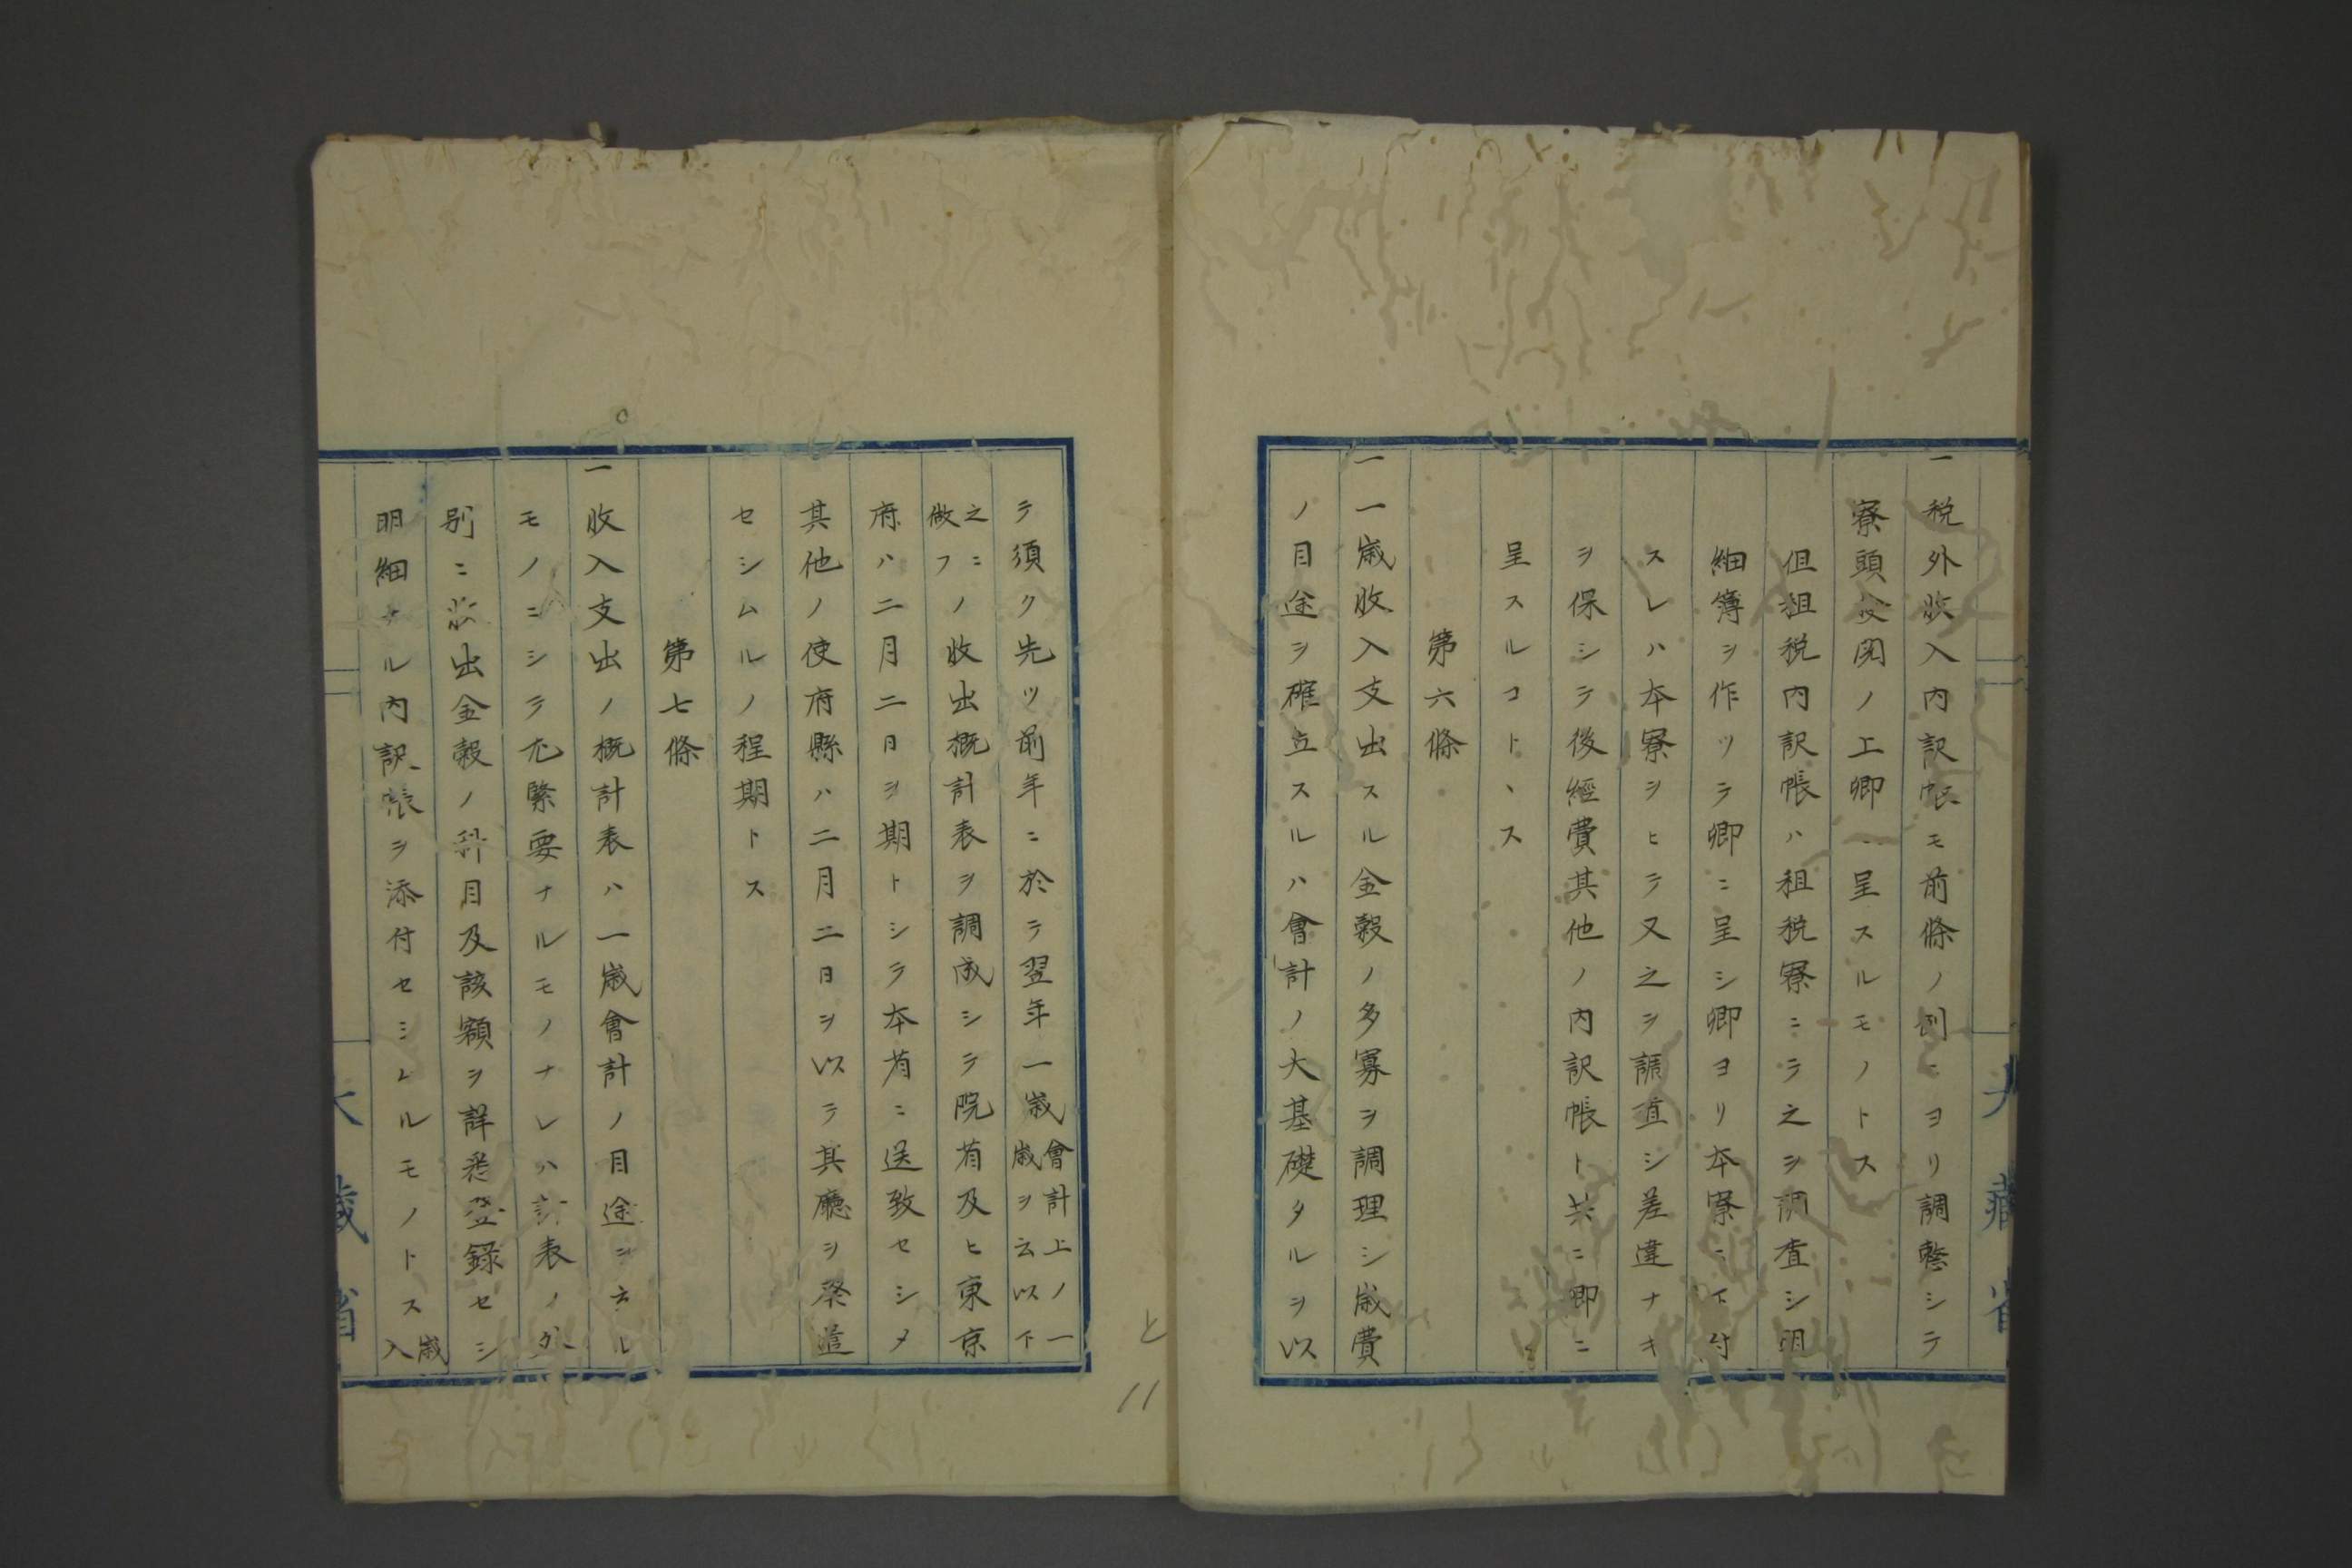 一税外收入内訳帳モ前條ノ例ニヨリ調整シテ
寮頭檢閲ノ上卿ニ呈スルモノトス
但租税内訳帳ハ租税寮ニテ之ヲ調査シ明
細簿ヲ作ツテ卿ニ呈シ卿ヨリ本寮ニ下付
スレハ本寮ヲヒテ又之ヲ調査シ差違ナキ
ヲ保シテ後經費其他ノ内訳帳ト共ニ卿ニ
呈スルコトヽス
第六條
一一歳收入支出スル金穀ノ多寡ヲ調理シ歳費
ノ目途ヲ確立スルハ會計ノ大基礎タルヲ以
テ須ク先ツ前年ニ於テ翌年一歳
會計上ノ一
歳ヲ云以下
之ニ
倣フ
ノ收出概計表ヲ調成シテ院省及ヒ東京
府ハ二月二日ヲ期トシテ本省ニ送致セシメ
其他ノ使府縣ハ二月二日ヲ以テ其廳ヲ發遣
セシムルノ程期トス
第七條
一收入支出ノ概計表ハ一歳會計ノ目途ヲ立ル
モノニシテ尤緊要ナルモノナレハ計表ノ外
別ニ收出金穀ノ科目及該額ヲ詳悉登録セシ
明細ナル内訳帳ヲ添付セシムルモノトス
歳
入
大藏省
大藏省
と
11